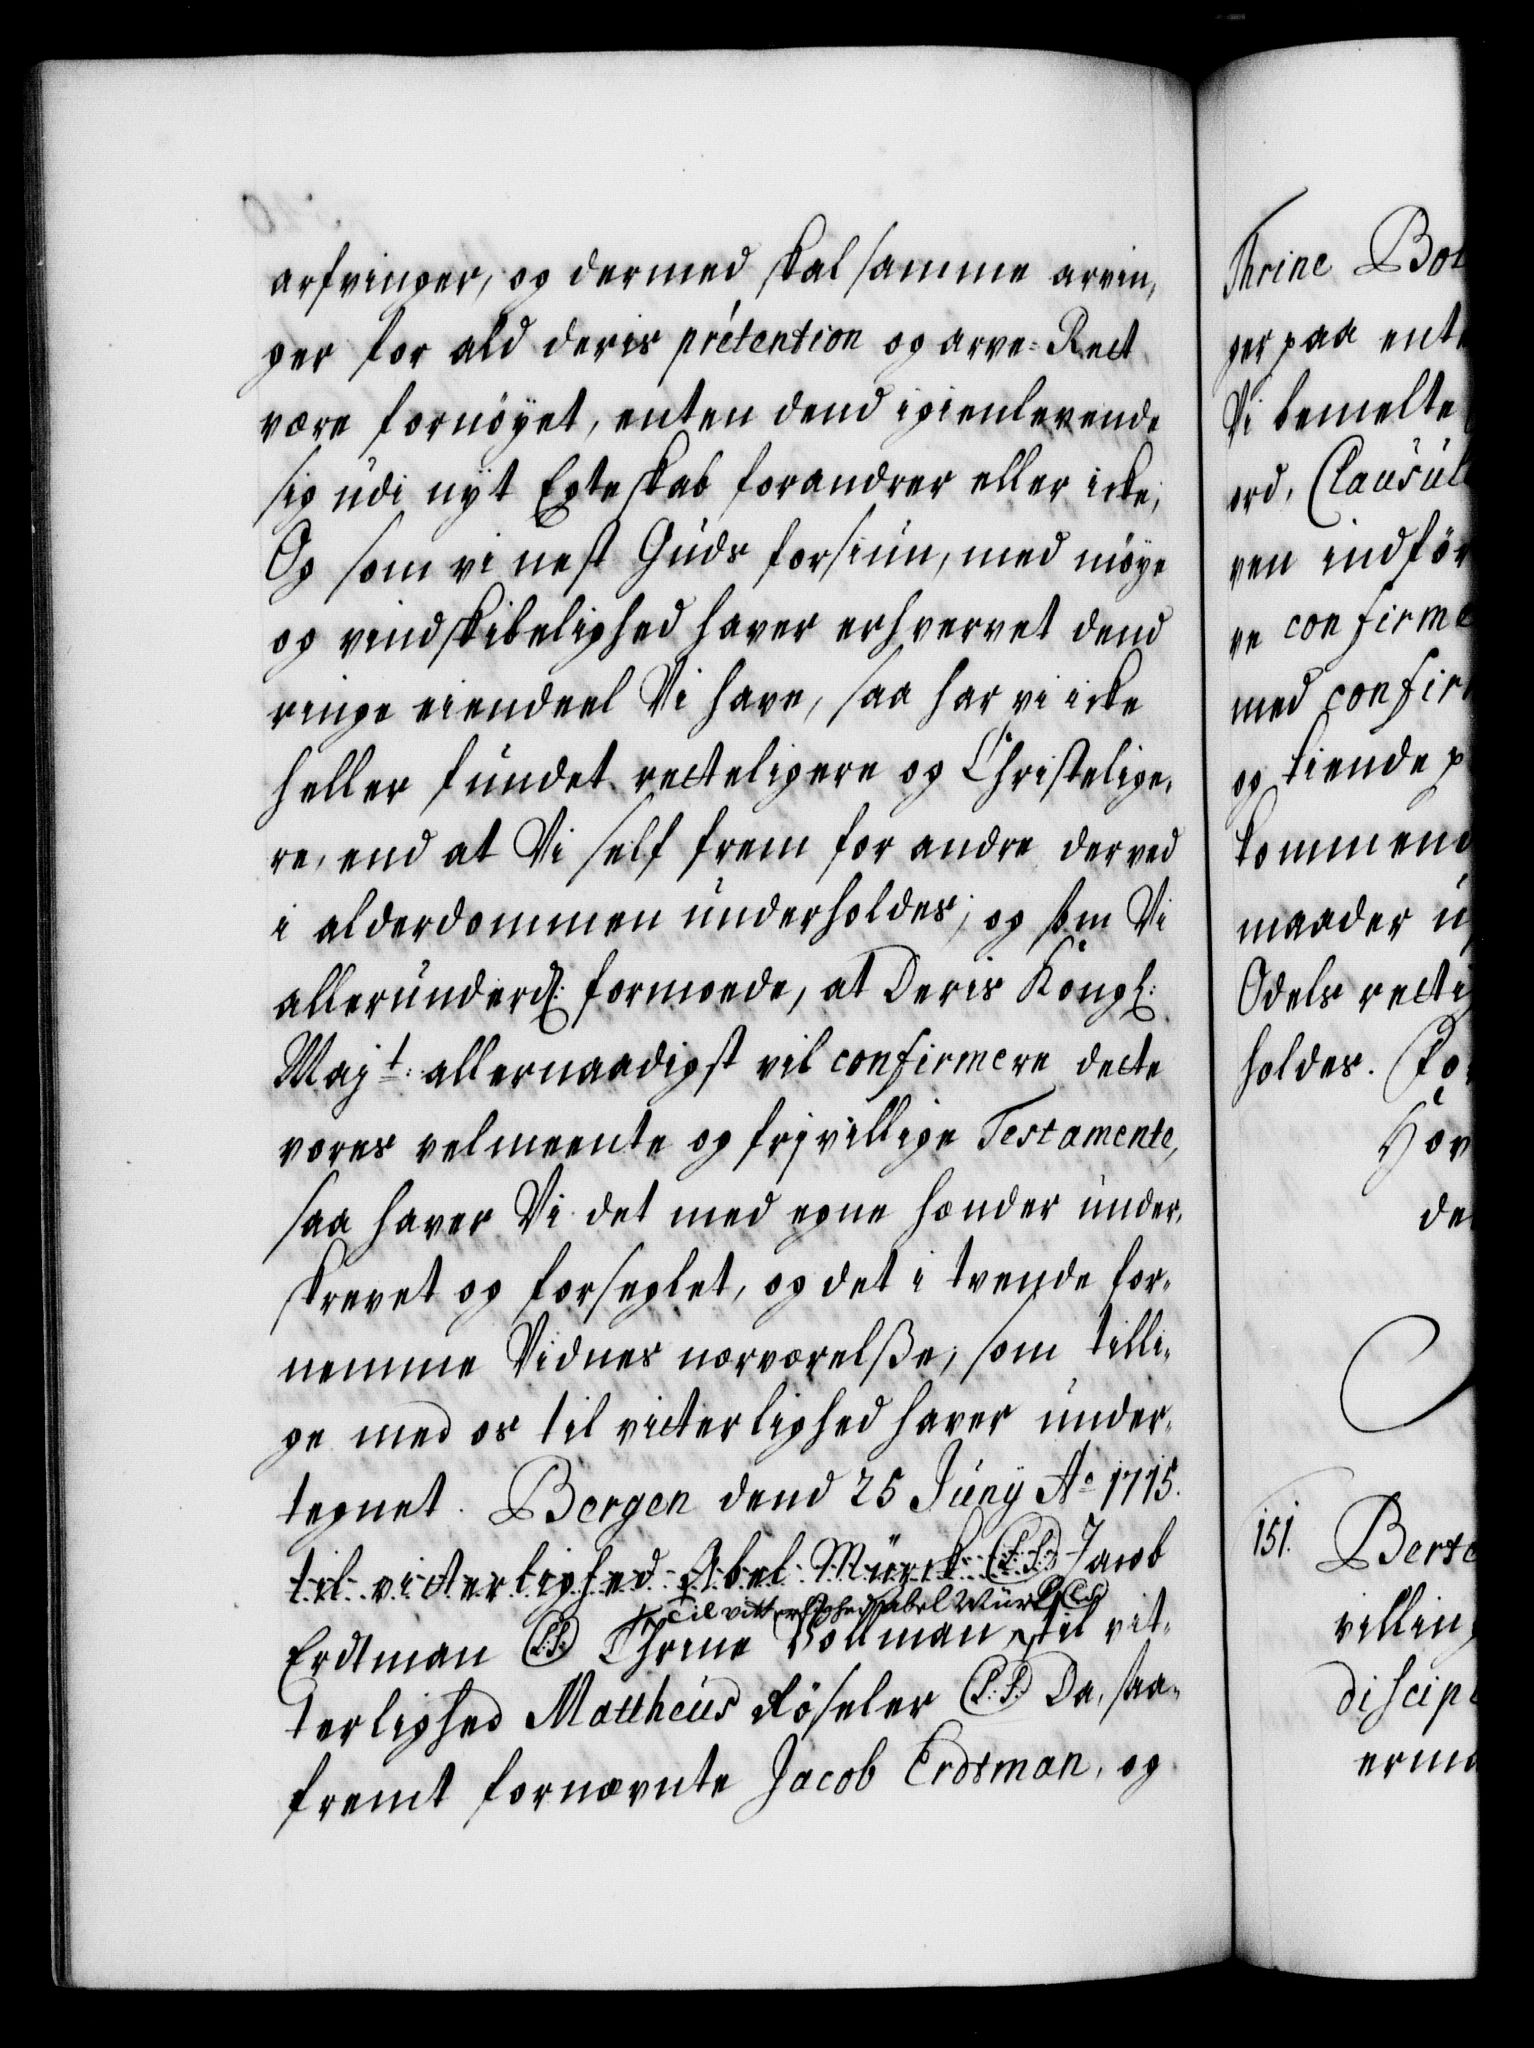 arfvinger, og dermed skal samme arvin,
ger for ald deris prétention og arve-Rect
være fornöyet, enten dend igienlevende
sig udi nyt Egteskab forandrer eller icke,
Og som vi nest Guds forsiun, med möye
og vindskibelighed haver erhvervet dend
ringe eiendeel Vi have, saa har vi icke
heller fundet recteligere og Christelige,
re, end at Vi self frem for andre derved
i alderdommen underholdes, og som Vi
allerunderd: formoede, at Deris Kongl:
Majt: allernaadigst vil confirmere dette
vores velmeente og frivillige Testamente,
saa haver Vi det med egne hænder under,
skrevet og forseglet, og det i tvende for,
nemme Vidnes nærværelße, som tilli,
ge med os til vitterlighed haver under,
tegnet. Bergen dend 25 Junÿ Ao 1715.
til vitterlighed Abel Mürck (L:S:) Jacob
til vitterlighed Abel Würck (LS)
Erdtman (L:S:) Thrine Bollman til vit,
terlighed Mattheus Röseler (L:S:) Da, saa,
fremt fornævnte Jacob Erdtman, og
Thrine Bol
ger paa ent
Vi bemelte
ord, Clausul
ven indför
re confirme
med confir
og tiende p
kommend
maader u
Odels recti
holdes.
151. Berte
villing
discipl
erma